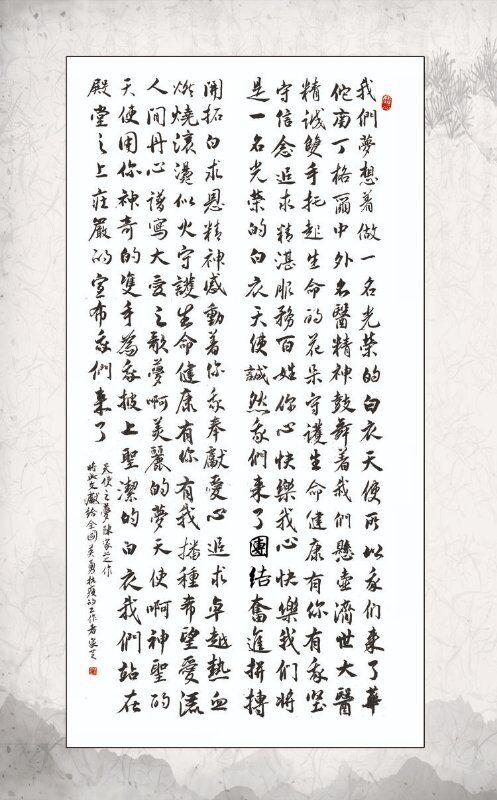 我們夢想着做一名光榮的白衣天使所以我们来了華
佗南丁格爾中外名醫精神鼓舞着我们懸壺濟世大醫
精诚雙手托起生命的花朵守護生命健康有你有我堅
守信念追求精湛服務百姓你心快樂我心快樂我们將
是一名光榮的白衣天使誠然我們来了團结奮進拼搏
開拓白求恩精神感動着你我奉獻愛心追求卓越熱血
燃燒滚燙似火守護生命健康有你有我播種希望愛流
人间丹心譜寫大愛之歌夢啊美麗的夢天使啊神聖的
天使用你神奇的雙手為我披上聖潔的白衣我們站在
殿堂之上莊嚴的宣布我們来了
天使之夢陳家芝作
特此文獻给全国英勇抗疫的工作者家芝